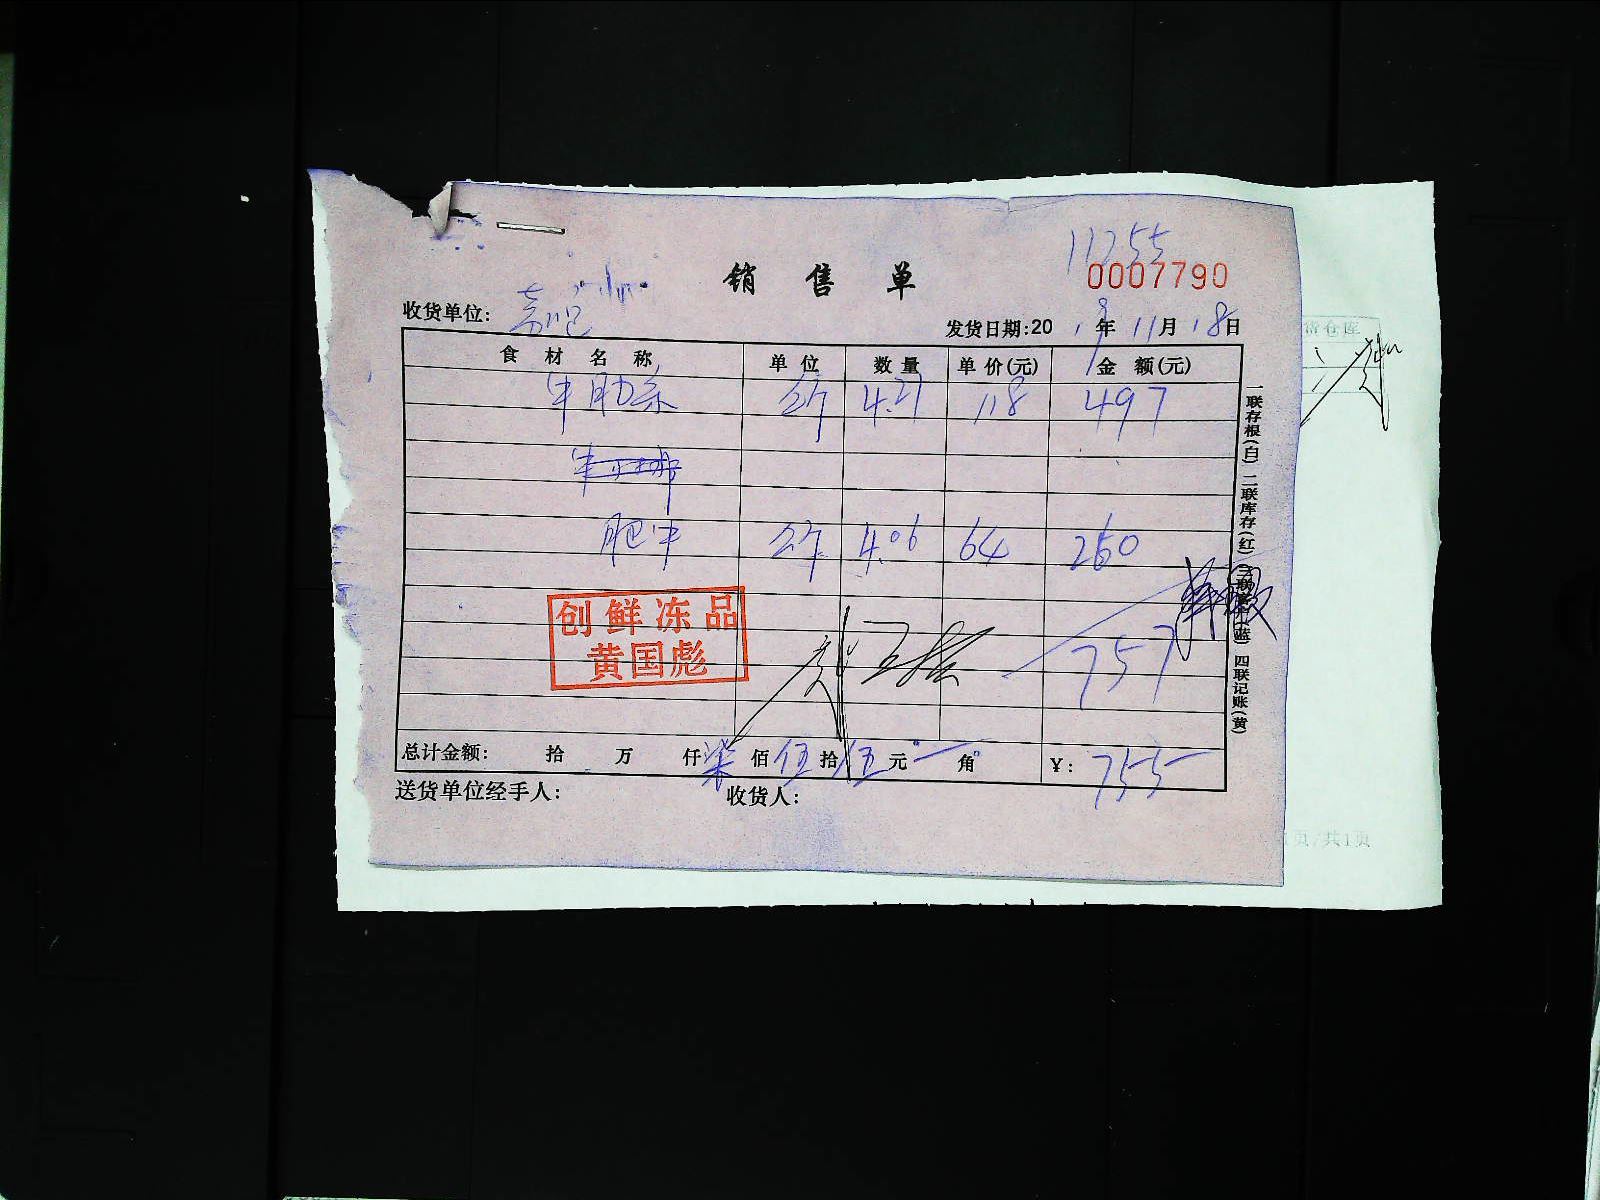 11255
销售单 0007790
收货单位:
发货日期:20 19年 11月 18日
食材名称 单位 数量 单价(元) 金额(元)
牛肋条 斤 4.21 118 497
肥牛 斤 4.06 64 260
创鲜冻品
黄国彪
757
总计金额: 拾 万 仟柒佰伍拾伍元 角 ¥: 755
送货单位经手人: 收货人:
一联存根(白) 二联库存(红) 三联 (蓝) 四联记账(黄)
页/共1页